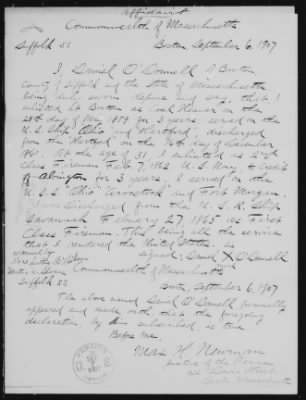 Affidavit
Commonwealth of Massachusetts
Suffolk SS Boston September 6, 1907
I, Daniel O'Donnell of Boston,
County of Suffolk and the State of Massachusetts
being duly sworn depose and say, that I
enlisted at Boston as a on the
28th day of May 1859 for 3 years; served on the
U.S. Ship Ohio and "Hartford"; discharged
from the Hartford on the 14th day of December
1861. At the age of 31 I enlisted as 1st
Class Fireman Feb 7 1862 U.S. Navy to credit
of Abington for 3 years. I served on the
U.S.S. "Ohio" "Aroostook" and Fort Morgan.
Discharged from the U.S. R. Ship
Savannah February 27 1865 as First
Class Fireman. This being all the service
that I rendered the United States.
signed, Daniel X O'Donnell
Commonwealth of Massachusetts
Suffolk SS
Boston, September 6, 1907
The above named Daniel O'Donnell personally
appeared and made oath that the foregoing
declaration, by him subscribed, is true.
Before me,
Max H. Newman
Justice of the Peace
Boston, Massachusetts
PENSION
OFFICE
1907